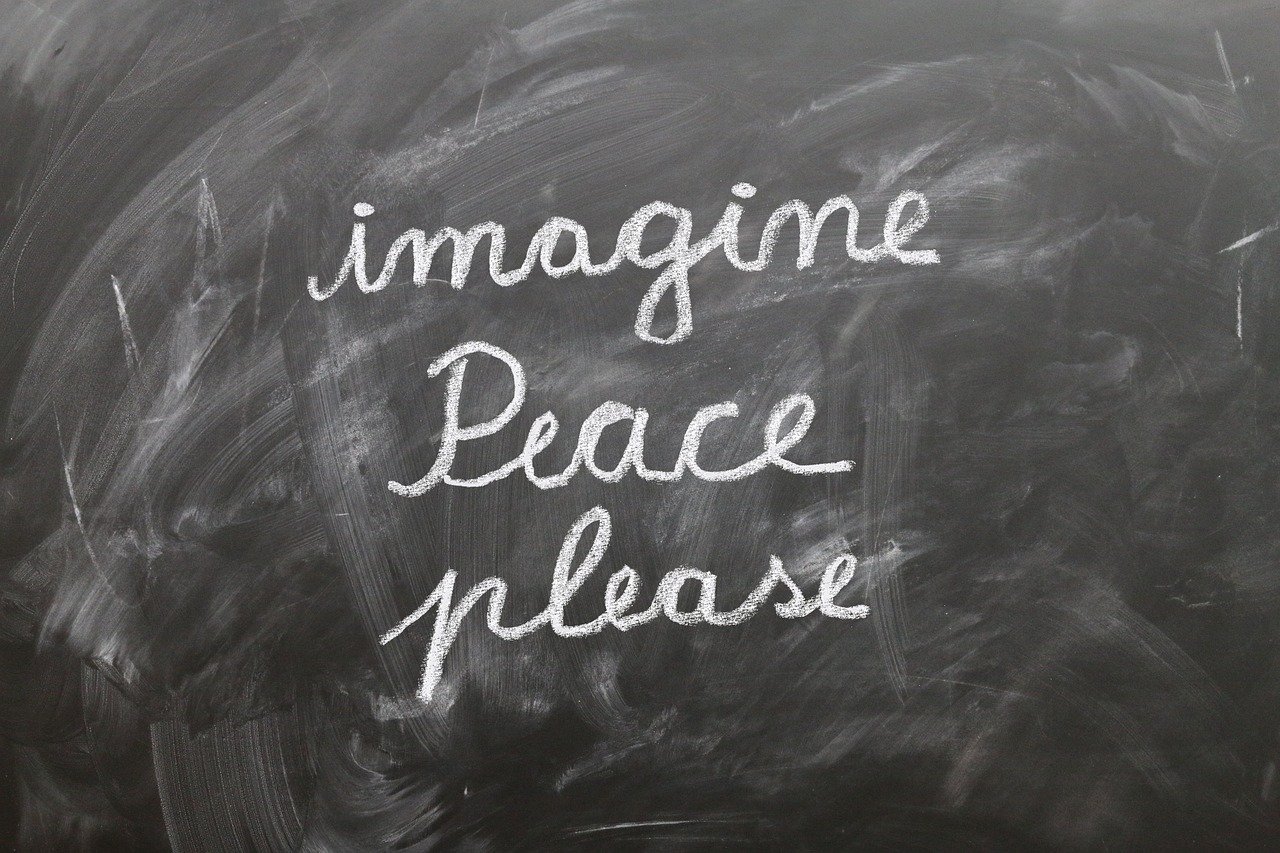 imagine
Peace
please